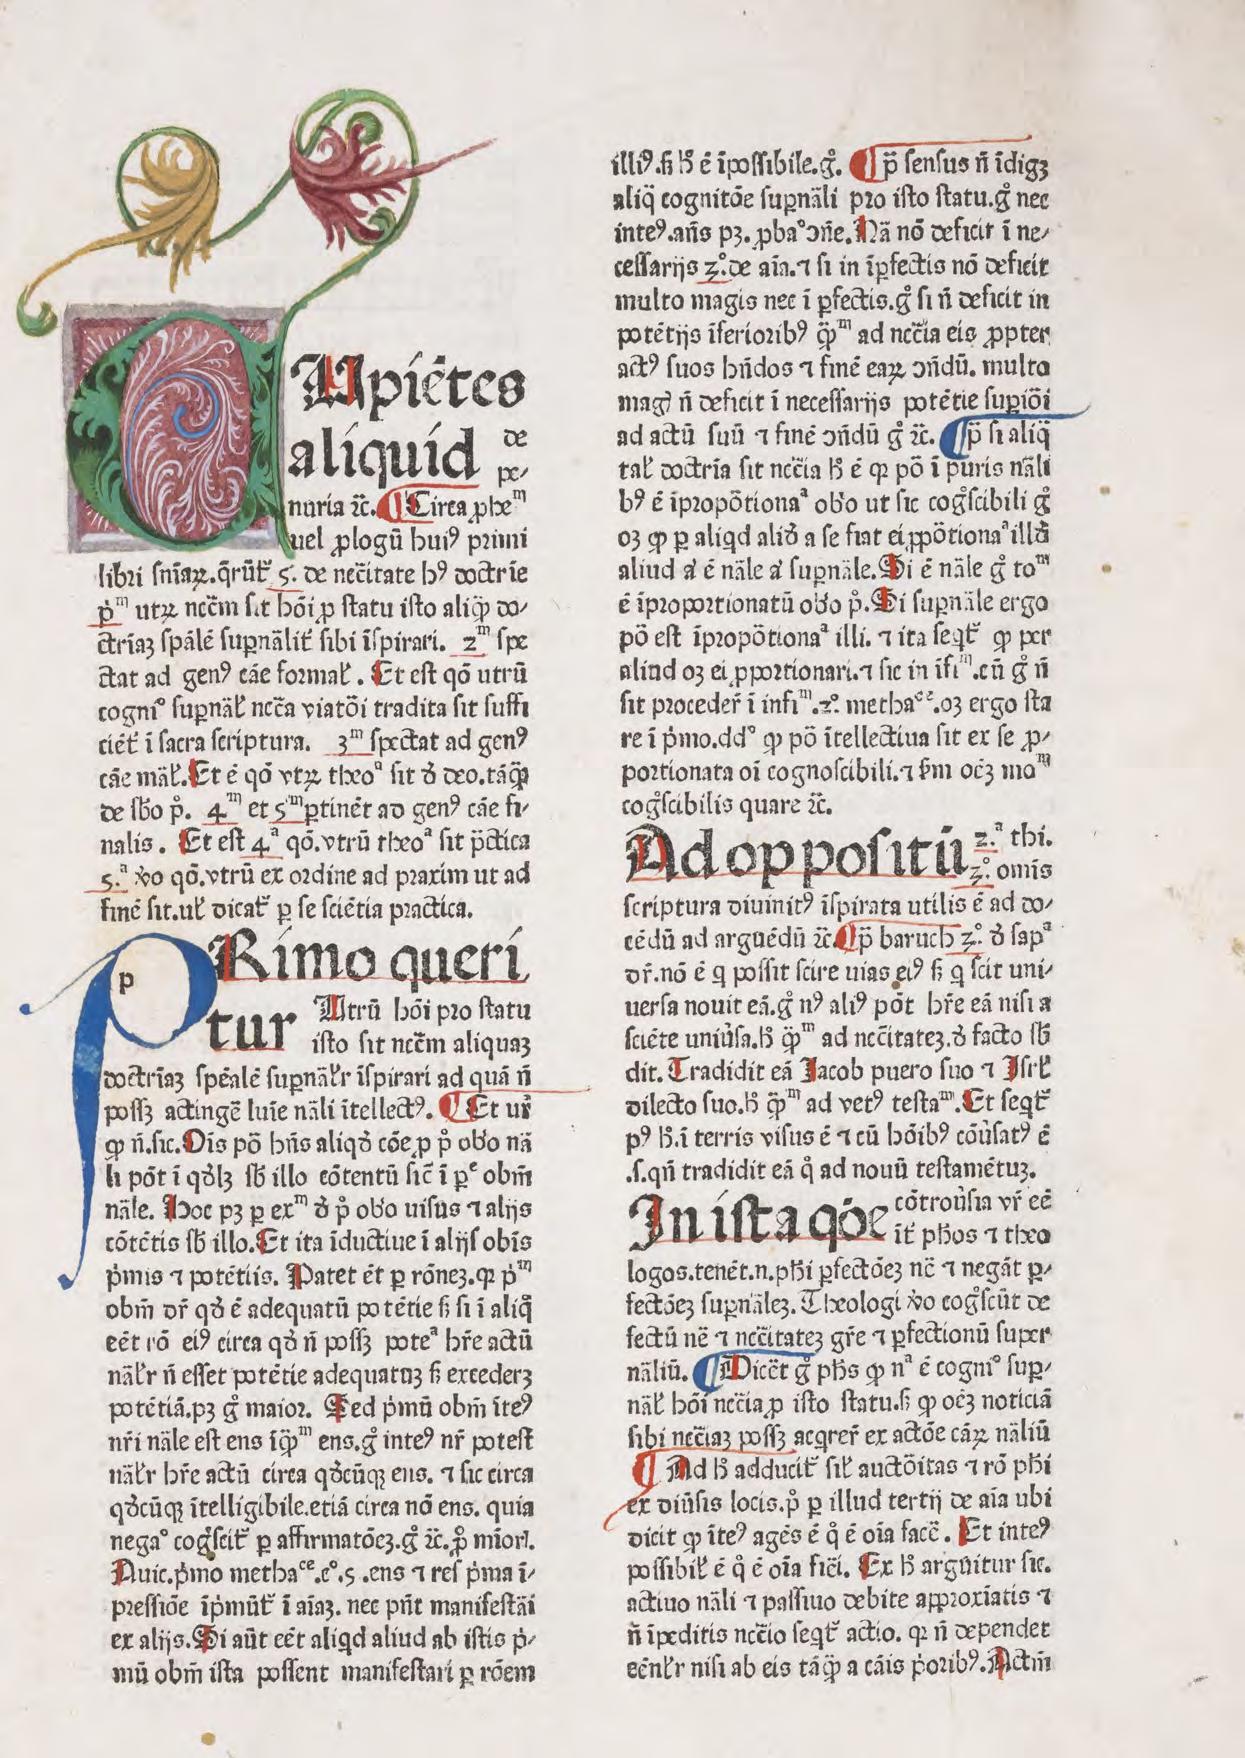 CUpiẽtes
aliquid de
pe/
nuria ⁊c̃. ¶ Circa ꝓheᵐ
uel ꝓlogũ huiꝰ primi
libri sniãꝝ.q̃rũt̃ 5. de necc̃itate hꝰ doctrie
ṗᵐ utꝝ necc̃m sit hõi ꝓ statu isto aliq̃ do/
ctriã̃ʒ spãlẽ suꝑnãlit̃ sibi ĩspirari. 2ᵐ spe
ctat ad genꝰ cãe formal̃. Et est qõ utrũ
cogniᵒ suꝑnãl̃ ncc̃a viatõi tradita sit suffi
ciẽt̃ ĩ sacra scriptura. 3ᵐ spectat ad genꝰ
cãe mãl̃. Et ẽ qõ vtꝝ theoᵃ sit ð deo.tãq̃ᵐ
de sbõ p̊. 4ᵐ et 5ᵐ ꝑtinẽt ad genꝰ cãe fi/
nalis. Et est 4ᵃ qõ.vtrũ theoᵃ sit p̃ctica
5.ᵃ v̊o qõ.vtrũ ex ordine ad praxim ut ad
finẽ sit.ul̃ dicat̃ ꝑ se sciẽtia practica.
PRimo queri
tur Utrũ hõi pro statu
isto sit ncc̃m aliquaʒ
doctriãʒ spẽalẽ suꝑnãl̃r ĩspirari ad quã ñ
possʒ actingẽ luĩe nãli ĩtellectꝰ. ¶ Et ur̃
ꝙ ñ.sic. Oĩs põ hñs aliqð cõe ꝓ p̊ obõ nã
li põt ĩ qðlʒ sb̃ illo cõtentũ sic̃ ĩ ꝑᵉ obm̃
nãle. Hoc pʒ ꝑ exᵐ ð p̊ obõ uisus ⁊ alijs
cõtẽtis sb̃ illo. Et ita ĩductiue ĩ alijs obĩs
ṗmis ⁊ potẽtiis. Patet ẽt ꝑ rõneʒ.qꝛ ṗᵐ
obm̃ dr̃ qð ẽ adequatũ potẽtie sʒ si ĩ aliq̊
eẽt rõ eiꝰ circa qð ñ possʒ poteᵃ hr̃e actũ
nãl̃r ñ esset potẽtie adequatuʒ sʒ excederʒ
potẽtiã.pʒ g̊ maior. Sed ṗmũ obm̃ ĩteꝰ
nr̃i nãle est ens ĩq̃ᵐ ens.g̊ inteꝰ nr̃ potest
nãl̃r hr̃e actũ circa qðcũqʒ ens. ⁊ sic circa
qðcũqʒ ĩtelligibile.etiã circa nõ ens. quia
negaᵒ cog̊scit̃ ꝑ affirmatõeʒ.g̊ ⁊c̃. ꝓ̊ miorʲ.
Auic.ṗmo methaᶜᵉ.cᵒ.5 .ens ⁊ res ṗma ĩ/
pressiõe ĩṗmũt̃ ĩ aĩaʒ. nec pñt manifestãi
ex alijs. Si aũt eẽt aliqd aliud ab istis ṗ/
mũ obm̃ ista possent manifestari ꝑ rõem
illiꝰ.sʒ h̃ ẽ ĩpossibile.g̊. ¶ p̃ sensus ñ ĩdigʒ
aliq̃ cognitõe suꝑnãli pro isto statu.g̊ nec
inteꝰ.añs pʒ.ꝓbaᵒ ↄñe. Nã nõ deficit ĩ ne/
cessarijs 3.ᵒ de aĩa.⁊ si in ĩꝑfectis nõ deficit
multo magis nec ĩ ꝑfectis.g̊ si ñ deficit in
potẽtijs ĩferioribꝰ q̃ᵐ ad ncc̃ia eis ꝓpter
actꝰ suos hñdos ⁊ finẽ eaꝝ ↄñdũ. multo
magꝰ ñ deficit ĩ necessarijs potẽtie suꝑiõi
ad actũ suũ ⁊ finẽ ↄñdũ g̊ ⁊c̃. ¶ p̃ si aliq̃
tal̃ doctria sit ncc̃ia h̃ ẽ qꝛ põ ĩ puris nãli
bꝰ ẽ ĩpropõtionaᵃ obõ ut sic cog̊scibili g̊
oʒ ꝙ ꝑ aliqd alið a se fiat ei ꝓpõtionaᵃ illð
aliud aͥ ẽ nãle aͥ suꝑnãle. Si ẽ nãle g̊ toᵐ
ẽ ĩproportionatũ obõ p̊. Si suꝑnãle ergo
põ est ĩpropõtionaᵃ illi. ⁊ ita seqt̃ ꝙ per
aliud oʒ ei ꝓportionari.⁊ sic in ĩfiᵐ.cũ g̊ ñ
sit proceder̃ ĩ infiᵐ.2ᵒ. methaᶜᵉ.oʒ ergo sta
re ĩ ṗmo.ddᵒ ꝙ põ ĩtellectiua sit ex se ꝓ/
portionata oĩ cognoscibili.⁊ sm̃ oẽʒ moᵐ
cog̊scibilis quare ⁊c̃.
Ad oppositũ 2.ᵃ thi.
3.ᵒ omis
scriptura diuinitꝰ ĩspirata utilis ẽ ad do/
cẽdũ ad arguẽdũ ⁊c̃. ¶ p̃ baruch 3.ᵒ ð sapᵃ
dr̃.nõ ẽ q possit scire uias eiꝰ sʒ q scit uni/
uersa nouit eã.g̊ nꝰ aliꝰ põt hr̃e eã nisi a
sciẽte uniũsa.h̃ q̃ᵐ ad necc̃itateʒ.ð facto sb̃
dit. Tradidit eã Jacob puero suo ⁊ Isrl̃
dilecto suo.h̃ q̃ᵐ ad vetꝰ testaᵐ. Et seqt̃
pꝰ h̃.ĩ terris visus ẽ ⁊ cũ hõibꝰ cõũsatꝰ ẽ
.s.qñ tradidit eã q̊ ad nouũ testamẽtuʒ.
In ista qõe cõtroũsia vr̃ eẽ
ĩt̃ phos ⁊ theo
logos.tenẽt.n.phi ꝑfectõeʒ nc̃ ⁊ negãt ꝑ/
fectõeʒ suꝑnãleʒ. Theologi v̊o cog̊scũt de
fectũ nẽ ⁊ necc̃itateʒ gr̃e ⁊ ꝑfectionũ super
nãliũ. ¶ Dicẽt g̊ phs ꝙ nᵃ ẽ cogniᵒ suꝑ/
nãl̃ hõi ncc̃ia ꝓ isto statu.sʒ ꝙ oẽʒ noticiã
sibi ncc̃iaʒ possʒ acqrer̃ ex actõe cãꝝ nãliũ
¶ Ad h̃ adducit̃ sil̃ auctõitas ⁊ rõ phi
ex diũsis locis.p̊ ꝑ illud tertij de aĩa ubi
dicit ꝙ ĩteꝰ agẽs ẽ q̊ ẽ oĩa facẽ. Et inteꝰ
possibil̃ ẽ q̊ ẽ oĩa fici. Ex h̃ arguitur sic.
actiuo nãli ⁊ passiuo debite approxiatis ⁊
ñ ĩpeditis ncc̃io seqt̃ actio. qꝛ ñ dependet
eẽnl̃r nisi ab eis tãq̃ᵐ a cãis ṗoribꝰ. Actm̃